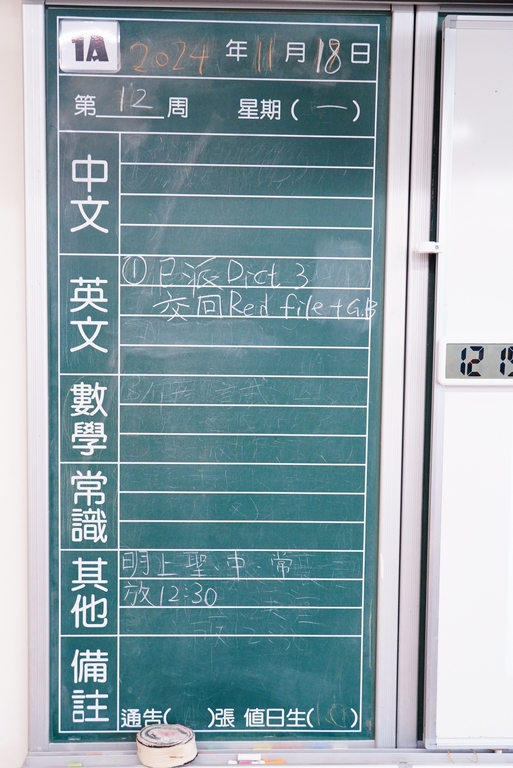 1A 2024年11月18日
第12周 星期(一)
中文
英文
①已派Dict 3
交回Red file+G.B
數學
常識
其他
明上聖、中、常
放12:30
備註
通告( )張 值日生( )
12 19